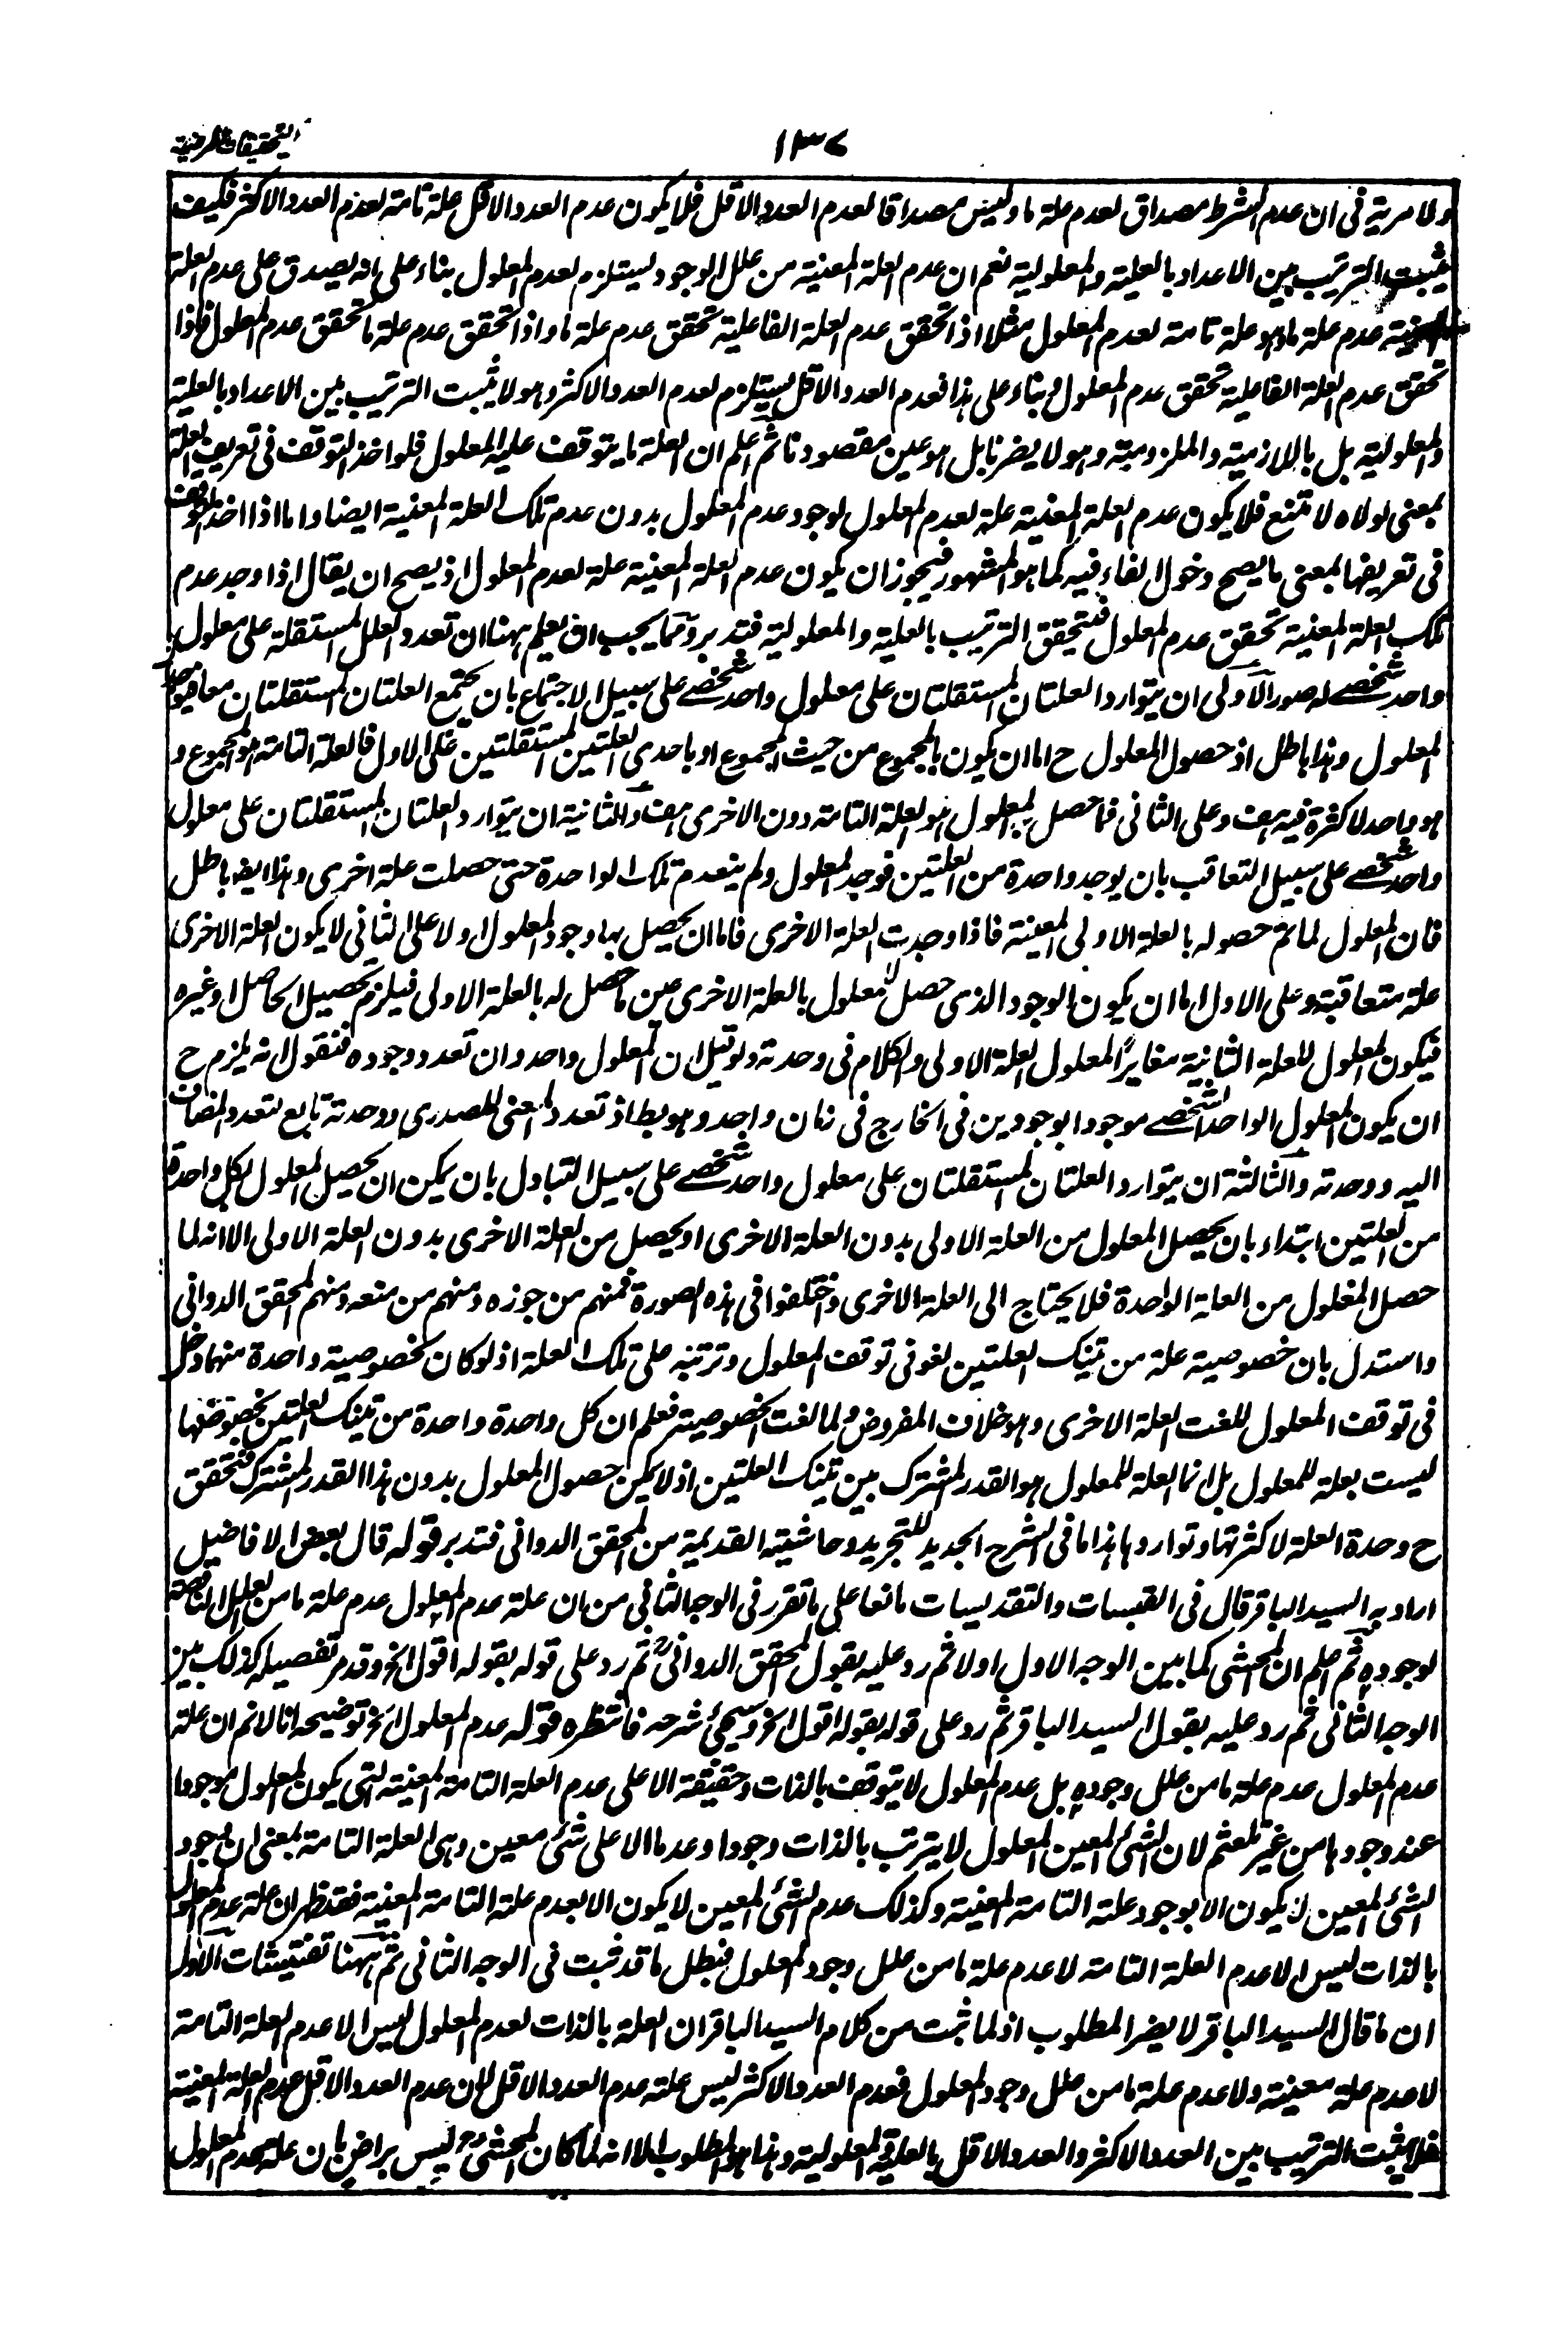 التحقيقات المرضية
١٣٧
ولا مرية فى ان عدم الشرط مصداق لعدم علة ما وليس مصداقا لعدم العدد الاقل فلا يكون عدم العدد الاقل علة تامة لعدم العدد الاكثر فكيف
يثبت الترتيب بين الاعداد بالعلية والمعلولية نعم ان عدم العلة المعنية من علل الوجود ليستلزم لعدم المعلول بناء على انه يصدق على عدم العلة
المعنية عدم علة ما وهو علة تامة لعدم المعلول مثلا اذا تحقق عدم العلة الفاعلية تحقق عدم علة ما واذا تحقق عدم علة ما تحقق عدم المعلول فاذا
تحقق عدم العلة الفاعلية تحقق عدم المعلول وبناء على هذا فعدم العدد الاقل يستلزم لعدم العدد الاكثر وهو لا يثبت الترتيب بين الاعداد بالعلية
والمعلولية بل باللازمية والملزومية وهو لا يضرنا بل هو عين مقصودنا ثم اعلم ان العلة ما يتوقف عليه المعلول فلو اخذ التوقف فى تعريف العلة
بمعنى لولاه لامتنع فلا يكون عدم العلة المعنية علة لعدم المعلول لوجود عدم المعلول بدون عدم تلك العلة المعنية ايضا واما اذا اخذ التوقف
فى تعريفها بمعنى ما يصح دخول الفاء فيه كما هو المشهور فيجوز ان يكون عدم العلة المعنية علة لعدم المعلول اذ يصح ان يقال اذا وجد عدم
تلك العلة المعنية تحقق عدم المعلول فتحقق الترتيب بالعلية والمعلولية فتدبر ومما يجب ان يعلم ههنا ان تعدد العلل المستقلة على معلول
واحد شخصے له صور الاولى ان يتوارد العلتان المستقلتان على معلول واحد شخصے على سبيل الاجتماع بان يجتمع العلتان المستقلتان معا فيوجد
المعلول وهذا باطل اذ حصول المعلول ح اما ان يكون بالمجموع من حيث المجموع او باحدى العلتين المستقلتين فعلى الاول فالعلة التامة هو المجموع و
هو واحد لا كثرة فيه هف وعلى الثانى فما حصل به المعلول هو العلة التامة دون الاخرى هف والثانية ان يتوارد العلتان المستقلتان على معلول
واحد شخصے على سبيل التعاقب بان يوجد واحدة من العلتين فوجد المعلول ولم ينعدم تلك الواحدة حتى حصلت علة اخرى وهذا ايضا باطل
فان المعلول لما تم حصوله بالعلة الاولى المعينة فاذا وجدت العلة الاخرى فاما ان يحصل بها وجود المعلول اولا على الثانى لا يكون العلة الاخرى
علة متعاقبة وعلى الاول اما ان يكون الوجود الذى حصل للمعلول بالعلة الاخرى عين ما حصل له بالعلة الاولى فيلزم تحصيل الحاصل او غيره
فيكون المعلول للعلة الثانية مغايرًا لمعلول العلة الاولى والكلام فى وحدته ولو قيل ان المعلول واحد وان تعدد وجوده فنقول انه يلزم ح
ان يكون المعلول الواحد الشخصے موجودا بوجودين فى الخارج فى زمان واحد وهو بط اذ تعدد المعنى المصدرى ووحدته تابع لتعدد المضاف
اليه ووحدته والثالثة ان يتوارد العلتان المستقلتان على معلول واحد شخصے على سبيل التبادل بان يمكن ان يحصل المعلول بكل واحدة
من العلتين ابتداء بان يحصل المعلول من العلة الاولى بدون العلة الاخرى او يحصل من العلة الاخرى بدون العلة الاولى الا انه لما
حصل المعلول من العلة الواحدة فلا يحتاج الى العلة الاخرى واختلفوا فى هذه الصورة فمنهم من جوزه ومنهم من منعه ومنهم المحقق الدوانى
واستدل بان خصوصية علة من تينك العلتين لغو فى توقف المعلول وترتبه على تلك العلة اذ لو كان لخصوصية واحدة منهما دخل
فى توقف المعلول للغت العلة الاخرى وهو خلاف المفروض ولما لغت الخصوصية فعلم ان كل واحدة واحدة من تينك العلتين بخصوصها
ليست بعلة للمعلول بل انما العلة للمعلول هو القدر المشترك بين تينك العلتين اذ لا يمكن حصول المعلول بدون هذا القدر المشترك فتحقق
ح وحدة العلة لا كثرتها وتواردها هذا ما فى الشرح الجديد للتجريد وحاشيته القديمة من المحقق الدوانى فتدبر قوله قال بعض الافاضيل
اراد به السيد الباقر قال فى القبسات والتقديسات مانعا على ما تقرر فى الوجه الثانى من ان علة عدم المعلول عدم علة ما من العلل الناقصة
لوجوده ثم اعلم ان المحشى كما بين الوجه الاول اولا ثم رد عليه بقول المحقق الدوانى ثم رد على قوله بقوله اقول الخ وقد مر تفصيله كذلك بين
الوجه الثانى ثم رد عليه بقول السيد الباقر ثم رد على قوله بقوله اقول الخ وسيجئ شرحه فانتظره قوله عدم المعلول الخ توضيحه انا لا نم ان علة
عدم المعلول عدم علة ما من علل وجوده بل عدم المعلول لا يتوقف بالذات وحقيقة الا على عدم العلة التامة المعنية التى يكون المعلول موجودا
عند وجودها من غير تلعثم لان الشئ المعين المعلول لا يترتب بالذات وجودا وعدما الا على شئ معين وهى العلة التامة بمعنى ان وجود
الشئ المعين لا يكون الا بوجود علته التامة المعنية وكذلك عدم الشئ المعين لا يكون الا بعدم علته التامة المعنية فقد ظهر ان علة عدم المعلول
بالذات ليس الا عدم العلة التامة لا عدم علة ما من علل وجود المعلول فبطل ما قد ثبت فى الوجه الثانى ثم ههنا تفتيشات الاول
ان ما قال السيد الباقر لا يضر المطلوب اذ لما ثبت من كلام السيد الباقر ان العلة بالذات لعدم المعلول ليس الا عدم العلة التامة
لا عدم علة معينة ولا عدم علة ما من علل وجود المعلول فعدم العدد الاكثر ليس علته عدم العدد الاقل لان عدم العدد الاقل عدم العلة المعنية
فلا يثبت الترتيب بين العدد الاكثر والعدد الاقل بالعلية والمعلولية وهذا هو المطلوب الا انه لما كان المحشى ليس براض بان علة عدم المعلول